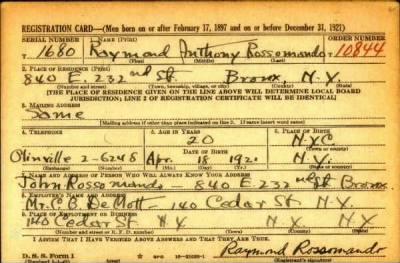 REGISTRATION CARD—(Men born on or after February 17, 1897 and on or before December 31, 1921)
SERIAL NUMBER 1. NAME (Print) ORDER NUMBER
T 1680 Raymond Anthony Rossomando T 10844
(First) (Middle) (Last)
2. PLACE OF RESIDENCE (Print)
840 E. 232nd St. Bronx, N.Y.
(Number and street) (Town, township, village, or city) (County) (State)
[THE PLACE OF RESIDENCE GIVEN ON THE LINE ABOVE WILL DETERMINE LOCAL BOARD
JURISDICTION; LINE 2 OF REGISTRATION CERTIFICATE WILL BE IDENTICAL]
3. MAILING ADDRESS
Same
[Mailing address if other than place indicated on line 2. If same insert word same]
4. TELEPHONE 5. AGE IN YEARS 6. PLACE OF BIRTH
20 N.Y.C.
DATE OF BIRTH (Town or county)
Olinville 2-6248 Apr. 18 1921 N.Y.
(Exchange) (Number) (Mo.) (Day) (Yr.) (State or country)
7. NAME AND ADDRESS OF PERSON WHO WILL ALWAYS KNOW YOUR ADDRESS
John Rossomando 840 E. 232nd St Bronx
8. EMPLOYER'S NAME AND ADDRESS
Mr. C. B. DeMott 140 Cedar St. N.Y.
9. PLACE OF EMPLOYMENT OR BUSINESS
140 Cedar St. N.Y. N.Y. N.Y.
(Number and street or R. F. D. number) (Town) (County) (State)
I AFFIRM THAT I HAVE VERIFIED ABOVE ANSWERS AND THAT THEY ARE TRUE.
Raymond Rossomando
D. S. S. Form 1
(Registrant's signature)